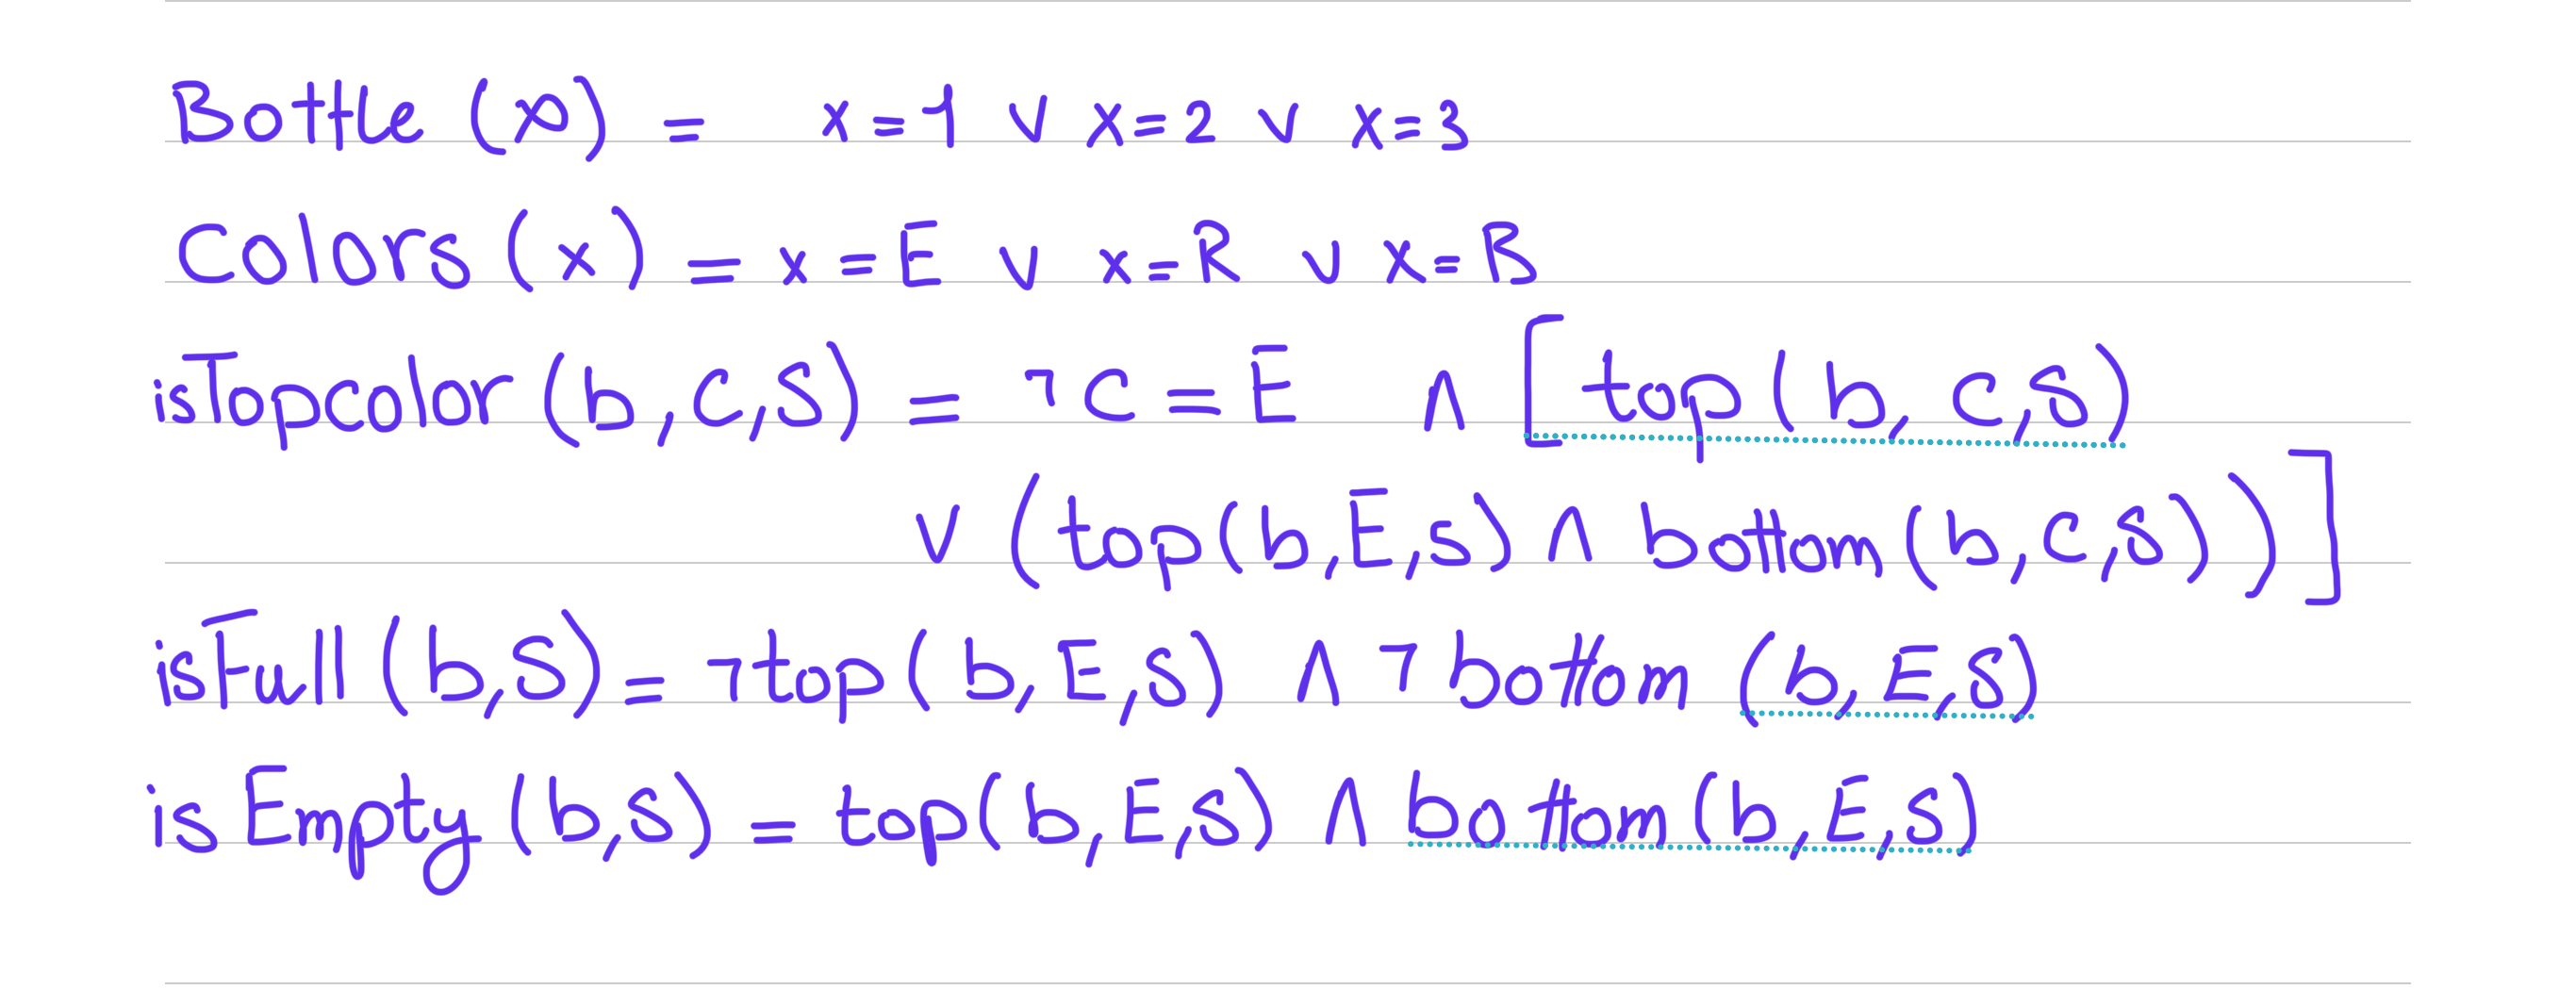 Bottle (x) = x=1 ∨ x=2 ∨ x=3
Colors (x) = x=E ∨ x=R ∨ x=B
isTopcolor(b,c,s) = ¬c=E ∧ [top(b,c,s)
∨ (top(b,E,s) ∧ bottom(b,c,s))]
isFull(b,s) = ¬top(b,E,s) ∧ ¬bottom (b,E,s)
isEmpty(b,s) = top(b,E,s) ∧ bottom(b,E,s)